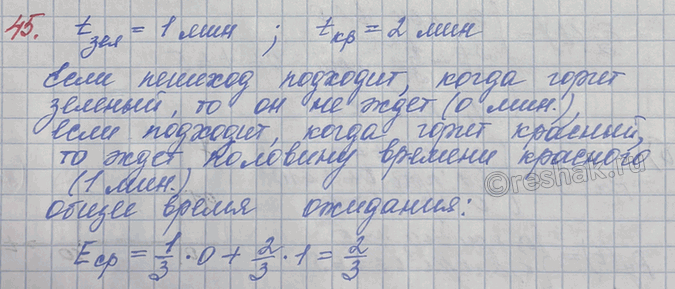 45. tзел = 1 мин ; tкр = 2 мин
Если пешеход подходит, когда горит
зеленый, то он не ждет (0 мин.),
если подходит, когда горит красный,
то ждет половину времени красного
(1 мин.)
©reshak.ru
общее время ожидания:
Eср = 1/3 · 0 + 2/3 · 1 = 2/3